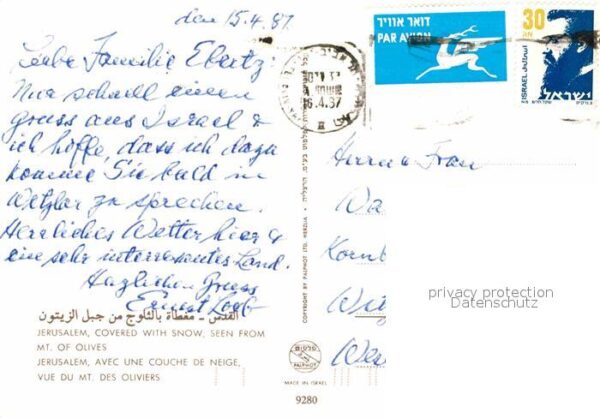 den 15.4.87.
Liebe Familie Ebertz:
Nur schnell einen
gruss aus Israel &
ich hoffe, dass ich dazu
komme Sie bald in
Wetzlar zu sprechen.
Herrliches Wetter hier &
ein sehr interresantes Land.
Herzlichen Gruss
Ernest Loeb
القدس ـ مغطاة بالثلوج من جبل الزيتون
JERUSALEM, COVERED WITH SNOW, SEEN FROM
MT. OF OLIVES
JERUSALEM, AVEC UNE COUCHE DE NEIGE,
VUE DU MT. DES OLIVIERS
COPYRIGHT BY PALPHOT LTD. HERZLIA
PALPHOT
MADE IN ISRAEL
9280
דואר אוויר
PAR AVION
16.4.87
30
ISRAEL
ישראל
Herrn & Frau
Wa
Kornb
We
privacy protection
Datenschutz